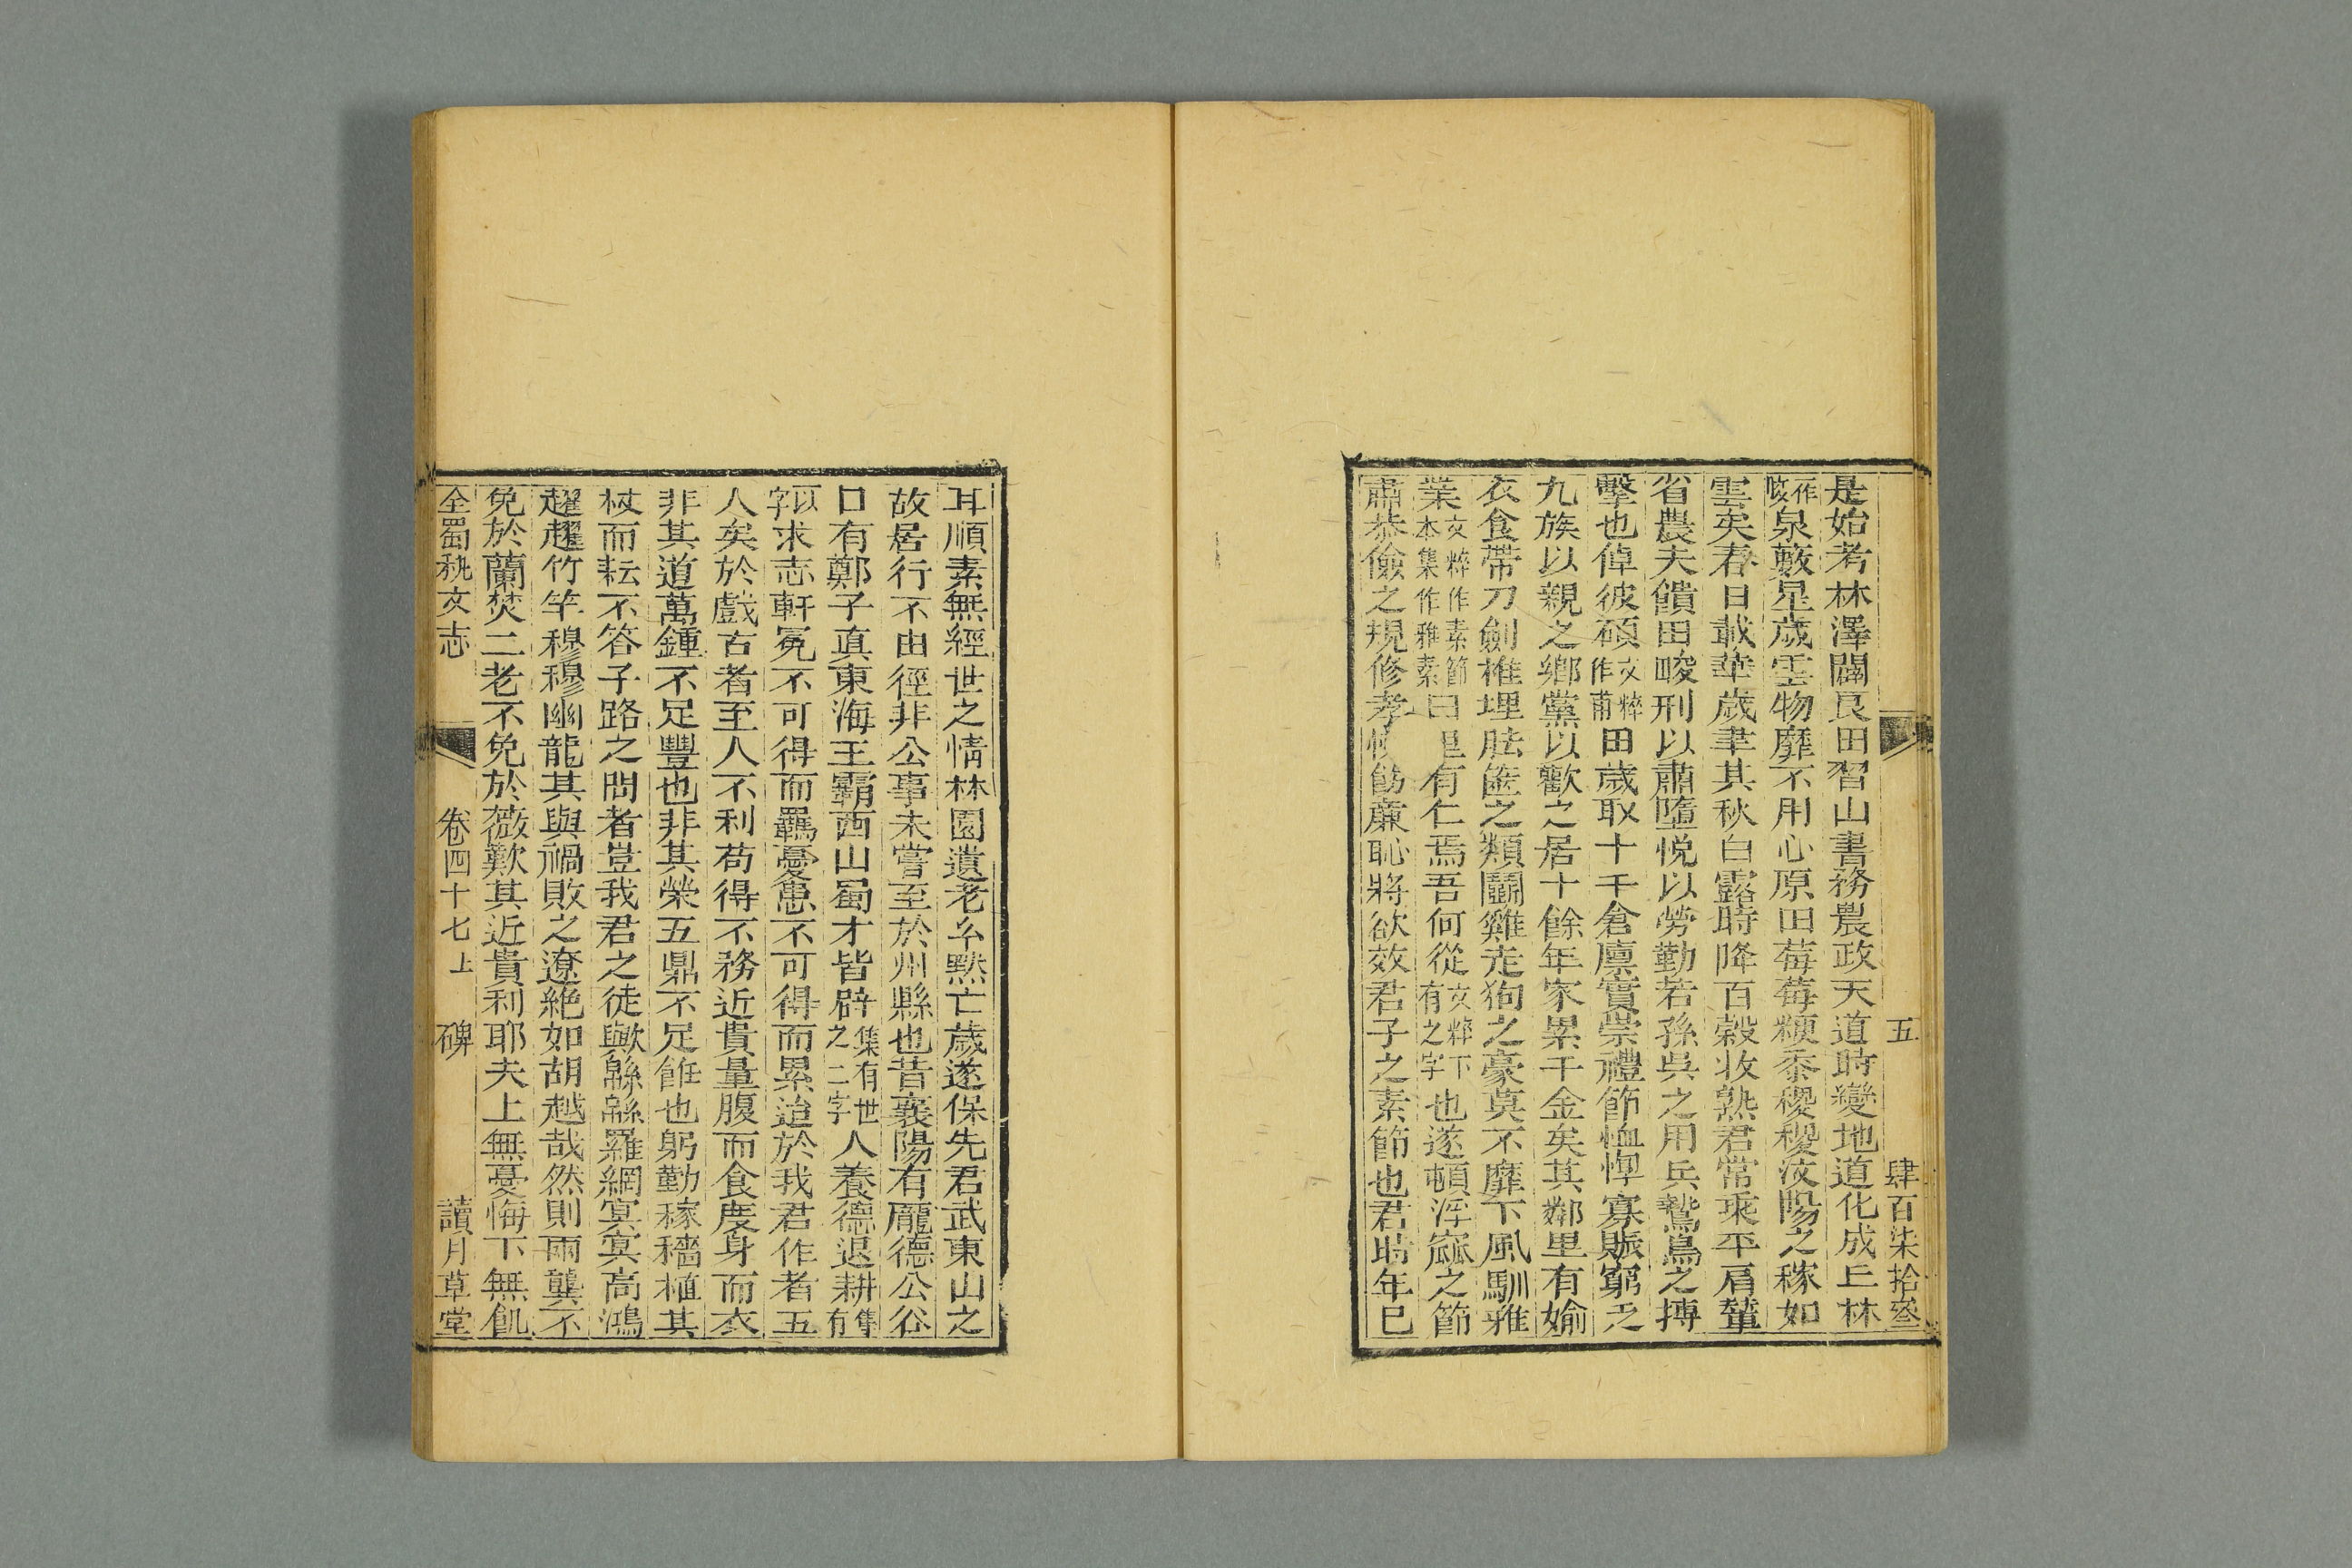 五 肆百柒拾叁
是始考林澤闢良田習山書務農政天道時變地道化成丘林
作峻泉藪星歲雲物靡不用心原田莓莓粳黍稷稷汶陽之稼如
雲矣春日載華歲聿其秋白露時降百穀收熟君常乘平肩轝
省農夫饋田畯刑以肅墮悅以勞勤若孫吳之用兵鷙鳥之搏
擊也倬彼碩文粹作甫田歲取十千倉廩實崇禮節恤惸寡賑窮乏
九族以親之鄉黨以歡之居十餘年家累千金矣其鄰里有媮
衣食帶刀劍椎埋胠篋之類鬭雞走狗之豪莫不靡下風馴雅
業文粹作素節本集作雅素曰里有仁焉吾何從文粹下有之字也遂頓浮寇之節
肅恭儉之規修孝飭廉恥將欲效君子之素節也君時年已
耳順素無經世之情林園遺老公默亡歲遂保先君武東山之
故居行不由徑非公事未嘗至於州縣也昔襄陽有龐德公谷
口有鄭子真東海王霸西山蜀才皆辟集有世之二字人養德退耕集有
以字求志軒冕不可得而羈憂患不可得而累迨於我君作者五
人矣於戲古者至人不利苟得不務近貴量腹而食度身而衣
非其道萬鍾不足豐也非其榮五鼎不足飪也躬勤稼穡植其
杖而耘不答子路之問者豈我君之徒歟緜緜羅網冥冥高鴻
趯趯竹竿穆穆幽龍其與禍敗之遼絕如胡越哉然則兩龔不
免於蘭焚二老不免於薇歎其近貴利耶夫上無憂悔下無飢
全蜀秇文志 卷四十七上 碑 讀月草堂